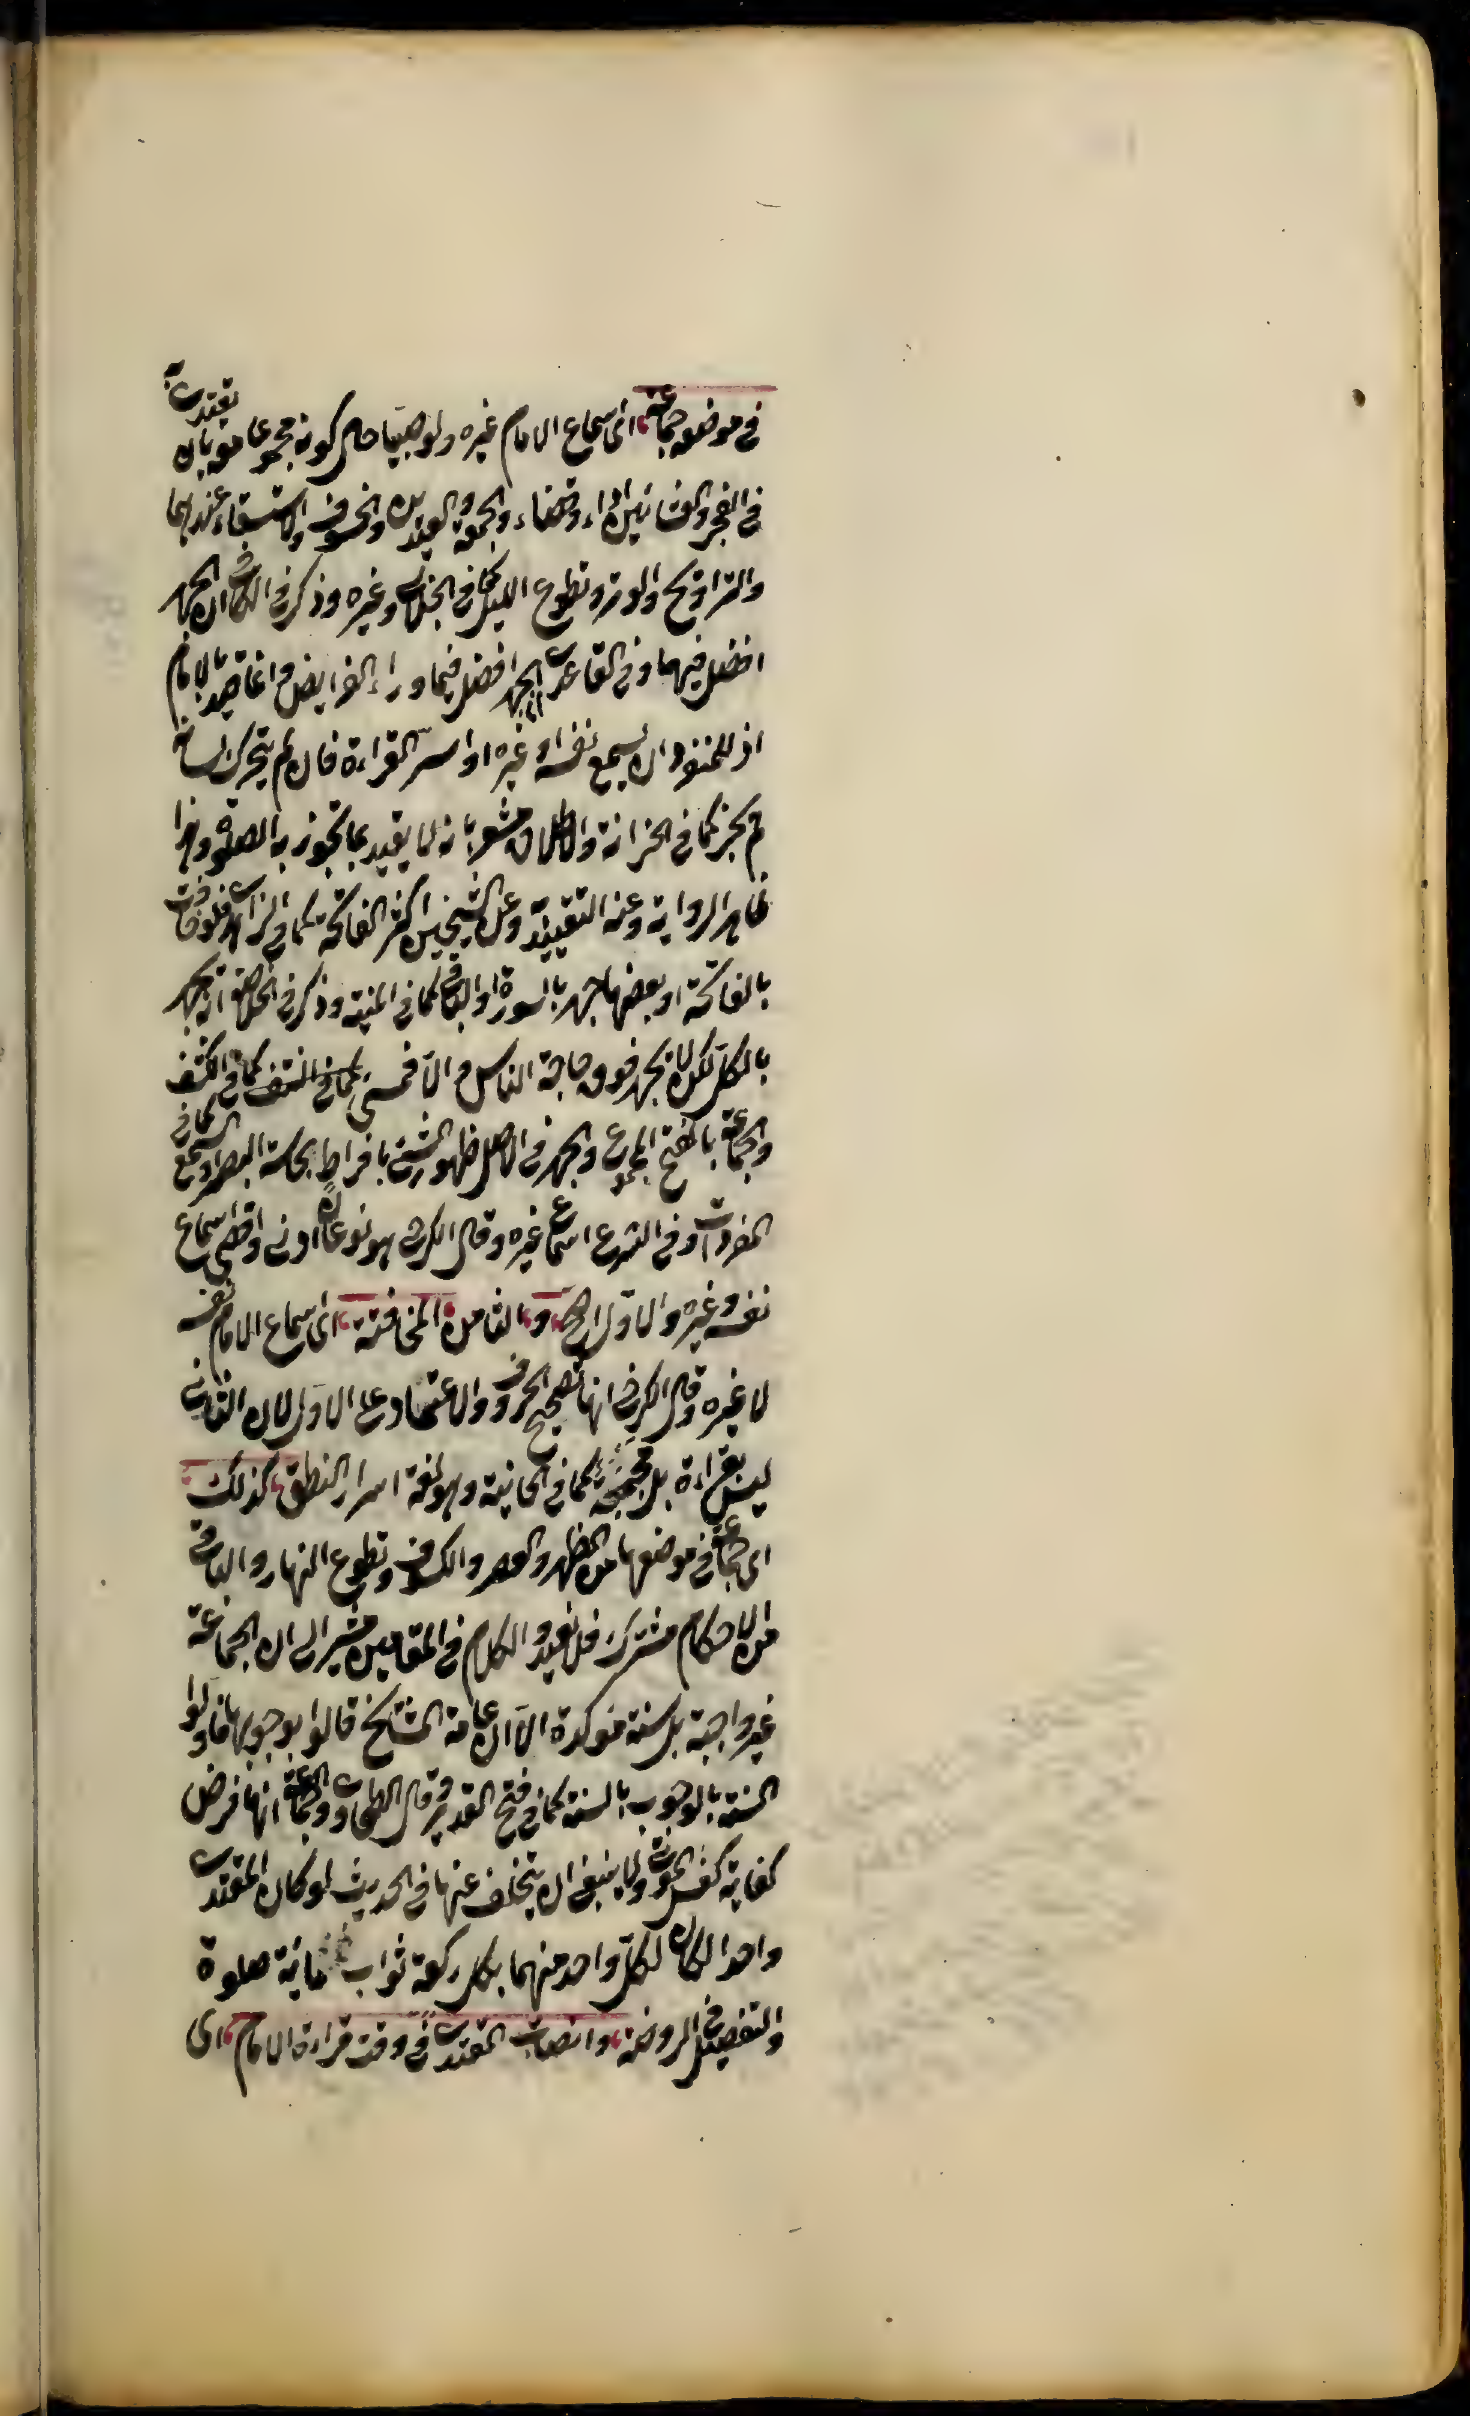 في موضعه جماعة اى اسماع الامام غيره ولو صبيا حال كونه مجموعا معه بان يقتدى به
في الفجر والعشائين اداء وقضاء والجمعة والعيدين والخسوف والاستسقاء عندهما
والتراويح والوتر وتطوع الليل كما في الجلابى وغيره وذكر في الكشف ان الجهر
افضل فيهما وفى القاعدى الجهر افضل فيما وراء الفرايض وانما قيد بالامام
اذ للمنفرد ان يسمع نفسه او غيره او اسر القراءة فان لم يتحرك لسانه
لم يجز كما في الخزانة والاطلاق مشعر بانه لا يقيد بما تجوز به الصلوة وهذا
ظاهر الرواية وعنه التقييد وعن الشيخين اكثر الفاتحة كما في الزاهدى فلو خافت
بالفاتحة او بعضها جهر بالسورة او الباقى كما في المنية وذكر في الخلاصة انه يجهر
بالكل لكن لا يجهر فوق حاجة الناس والا فمسيء كما في النتف كما في الكشف
والجماعة بالفتح المجموع والجهر في الاصل ظهور الشيء بافراط بحاسة البصر او السمع كما في
المفردات وفى الشرع اسماع غيره وقال الكرخى هو نوعان ادنى واقصى اسماع
نفسه وغيره والاول اصح والثامن المخافتة اى اسماع الامام نفسه
لا غيره وقال الكرخى انها تصحيح الحروف والاعتماد على الاول لان الثانى
ليس بقراءة بل مجمجة كما في الخانية وهو لغة اسرار النطق كذلك
اى جماعة في موضعها من الظهر والعصر والكسوف وتطوع النهار والباقى
من الاحكام مشترك فلا نعيد والكلام في المقامين مشير الى ان الجماعة
غير واجبة بل سنة مؤكدة الا ان عامة المشايخ قالوا بوجوبها فاولوا
السنة بالوجوب بالسنة كما في فتح القدير وقال الطحاوى والجماعة انها فرض
كفاية كغسل الموتى ولا ينبغي ان يتخلف عنها في الحديث لو كان المقتدى
واحدا لكان لكل واحد منهما بكل ركعة ثواب مائة صلوة
والتفصيل في الروضة وانصات المقتدى في وقت قراءة الامام اى